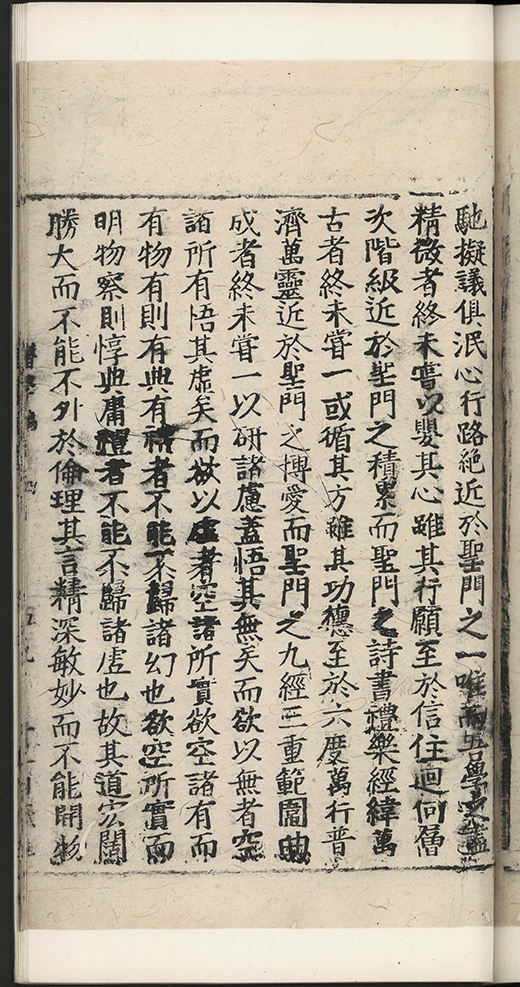 馳擬議俱泯心行路絕近於聖門之一唯而吾學
精微者終未嘗以嬰其心雖其行願至於信住迴向層
次階級近於聖門之積累而聖門之詩書禮樂經緯萬
古者終未嘗一或循其方雖其功德至於六度萬行普
濟萬靈近於聖門之博愛而聖門之九經三重範圍曲
成者終未嘗一以研諸慮蓋悟其無矣而欲以無者空
諸所有悟其虛矣而欲以虛者空諸所實欲空諸有而
有物有則有典有禮者不能不歸諸幻也欲空所實而
明物察則惇典庸禮者不能不歸諸虛也故其道宏闊
勝大而不能不外於倫理其言精深敏妙而不能開物